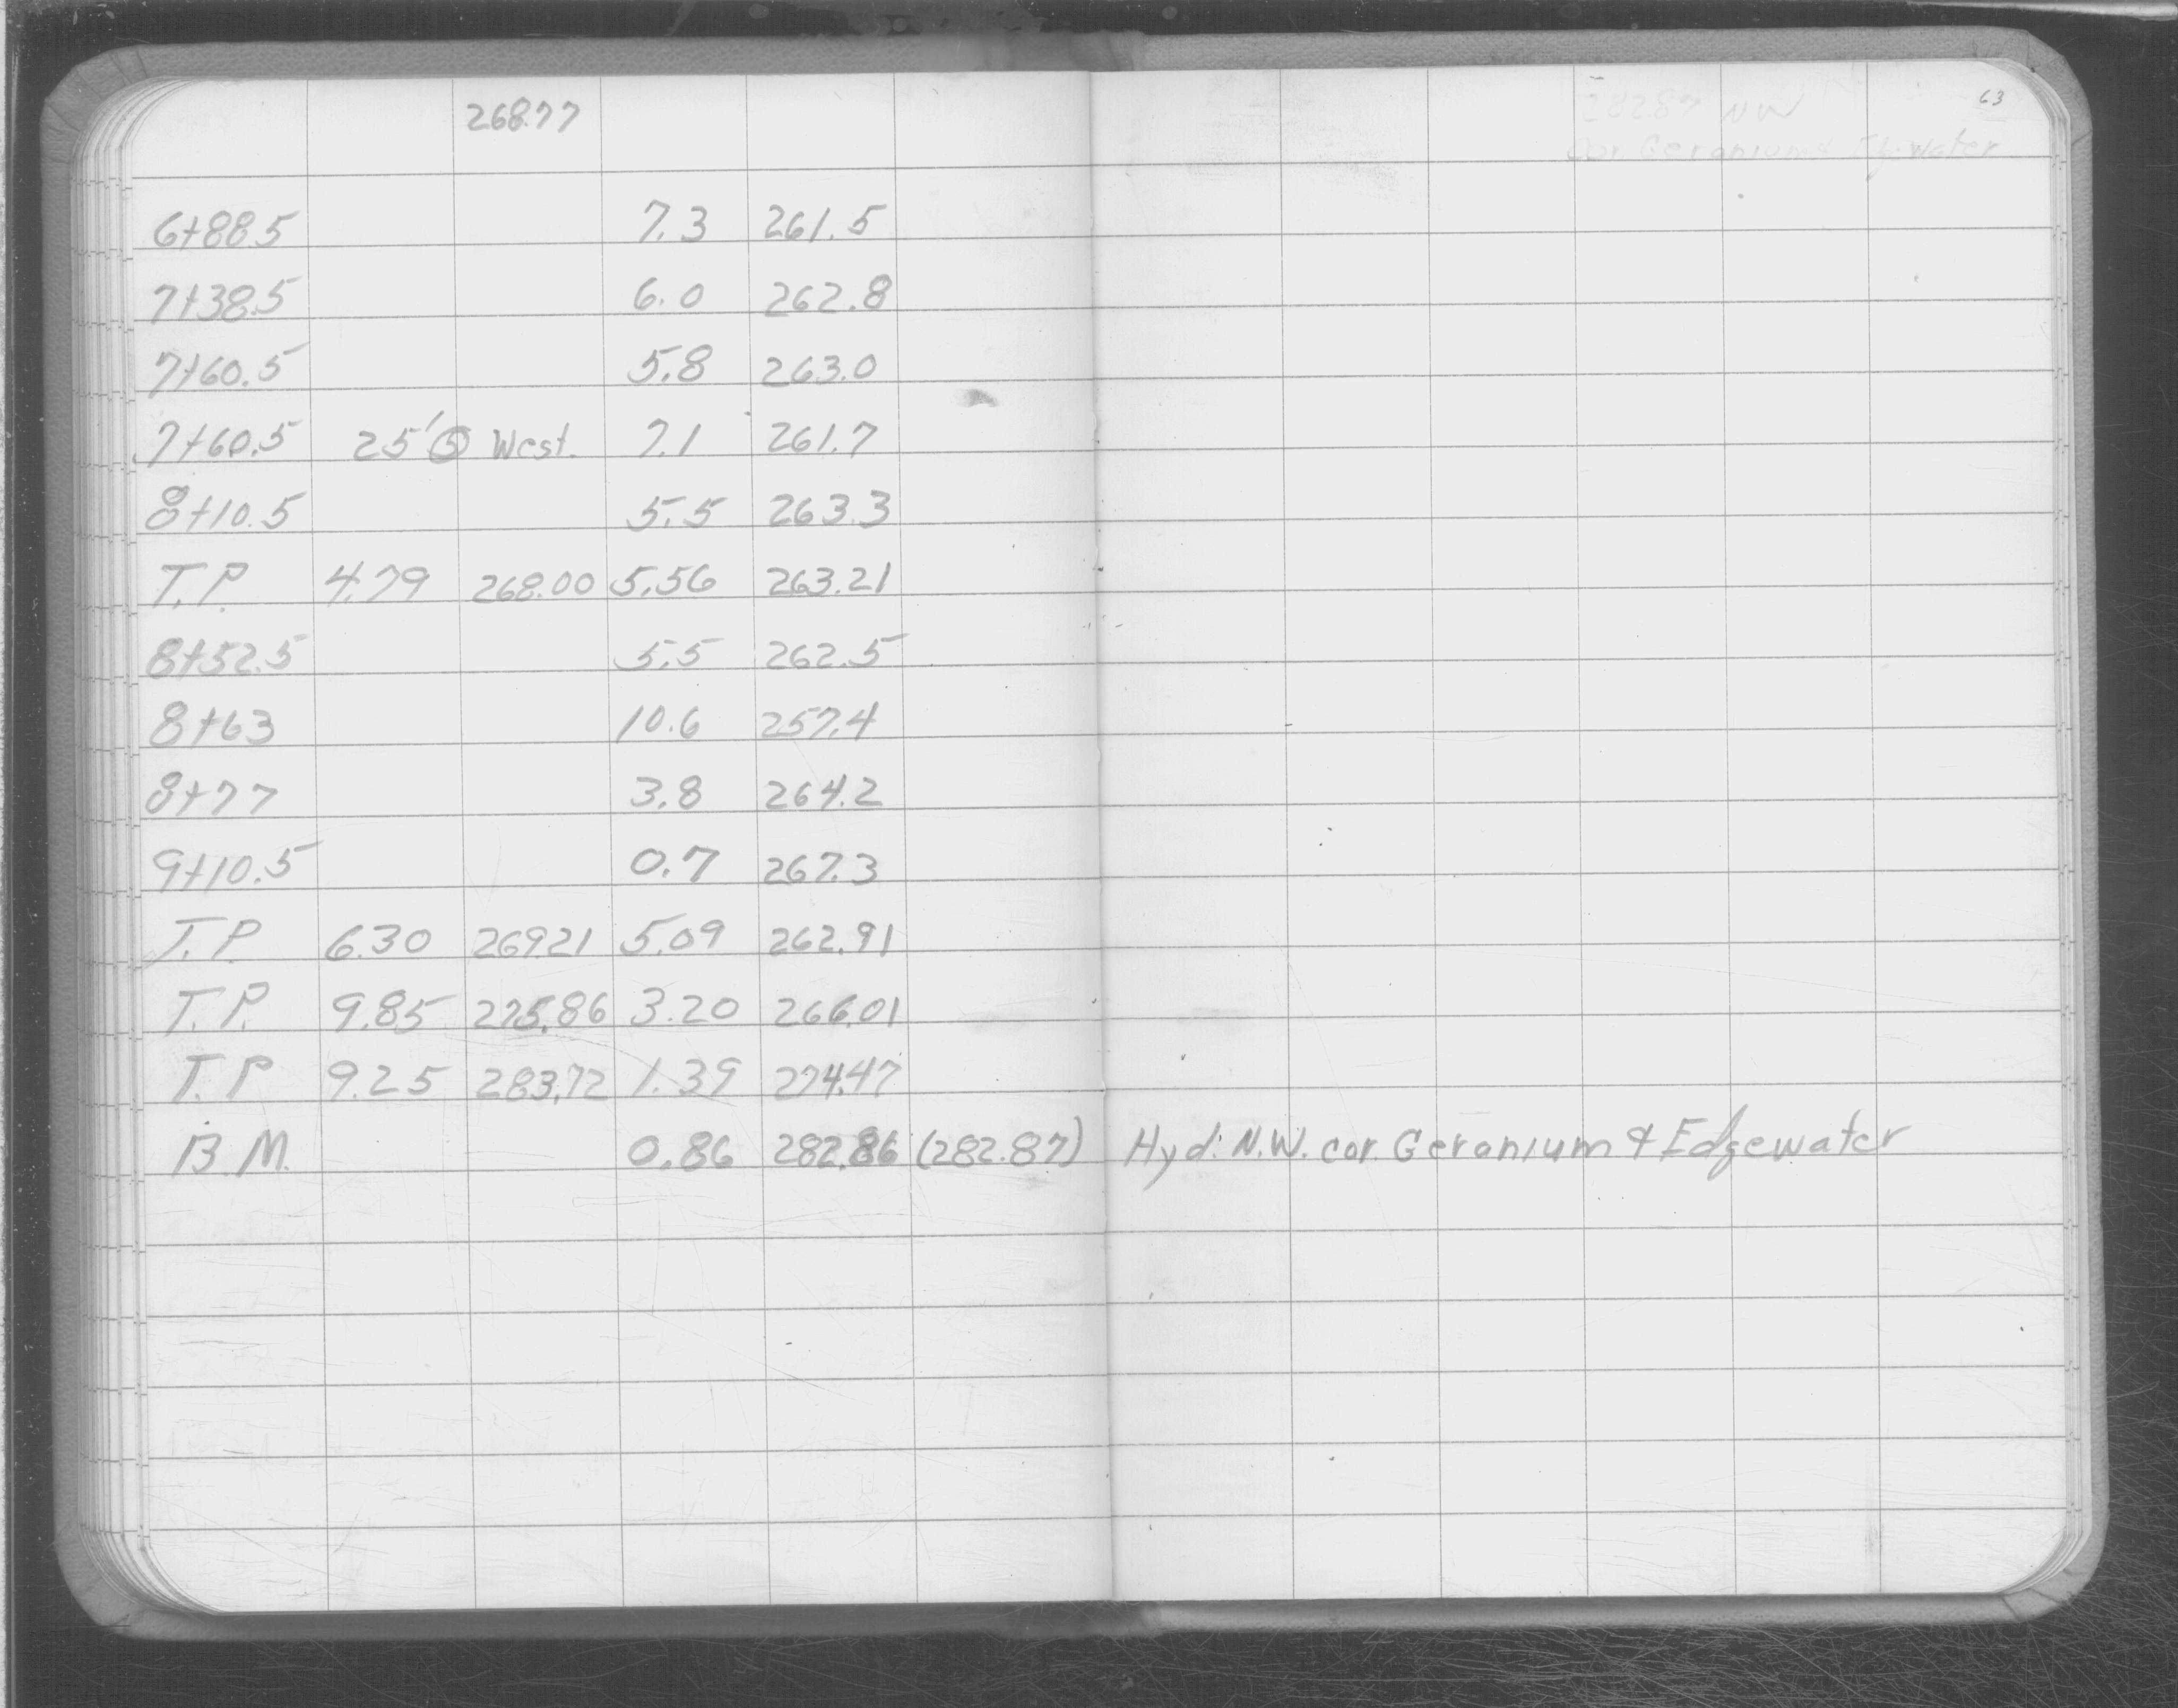 63
282.87 NW
Cor. Geranium & Edgewater
268.77
6+88.5 7.3 261.5
7+38.5 6.0 262.8
7+60.5 5.8 263.0
7+60.5 25' @ West. 7.1 261.7
8+10.5 5.5 263.3
T.P. 4.79 268.00 5.56 263.21
8+52.5 5.5 262.5
8+63 10.6 257.4
8+77 3.8 264.2
9+10.5 0.7 267.3
T.P. 6.30 269.21 5.09 262.91
T.P. 9.85 275.86 3.20 266.01
T.P 9.25 283.72 1.39 274.47
B.M. 0.86 282.86 (282.87) Hyd. N.W. cor. Geranium & Edgewater